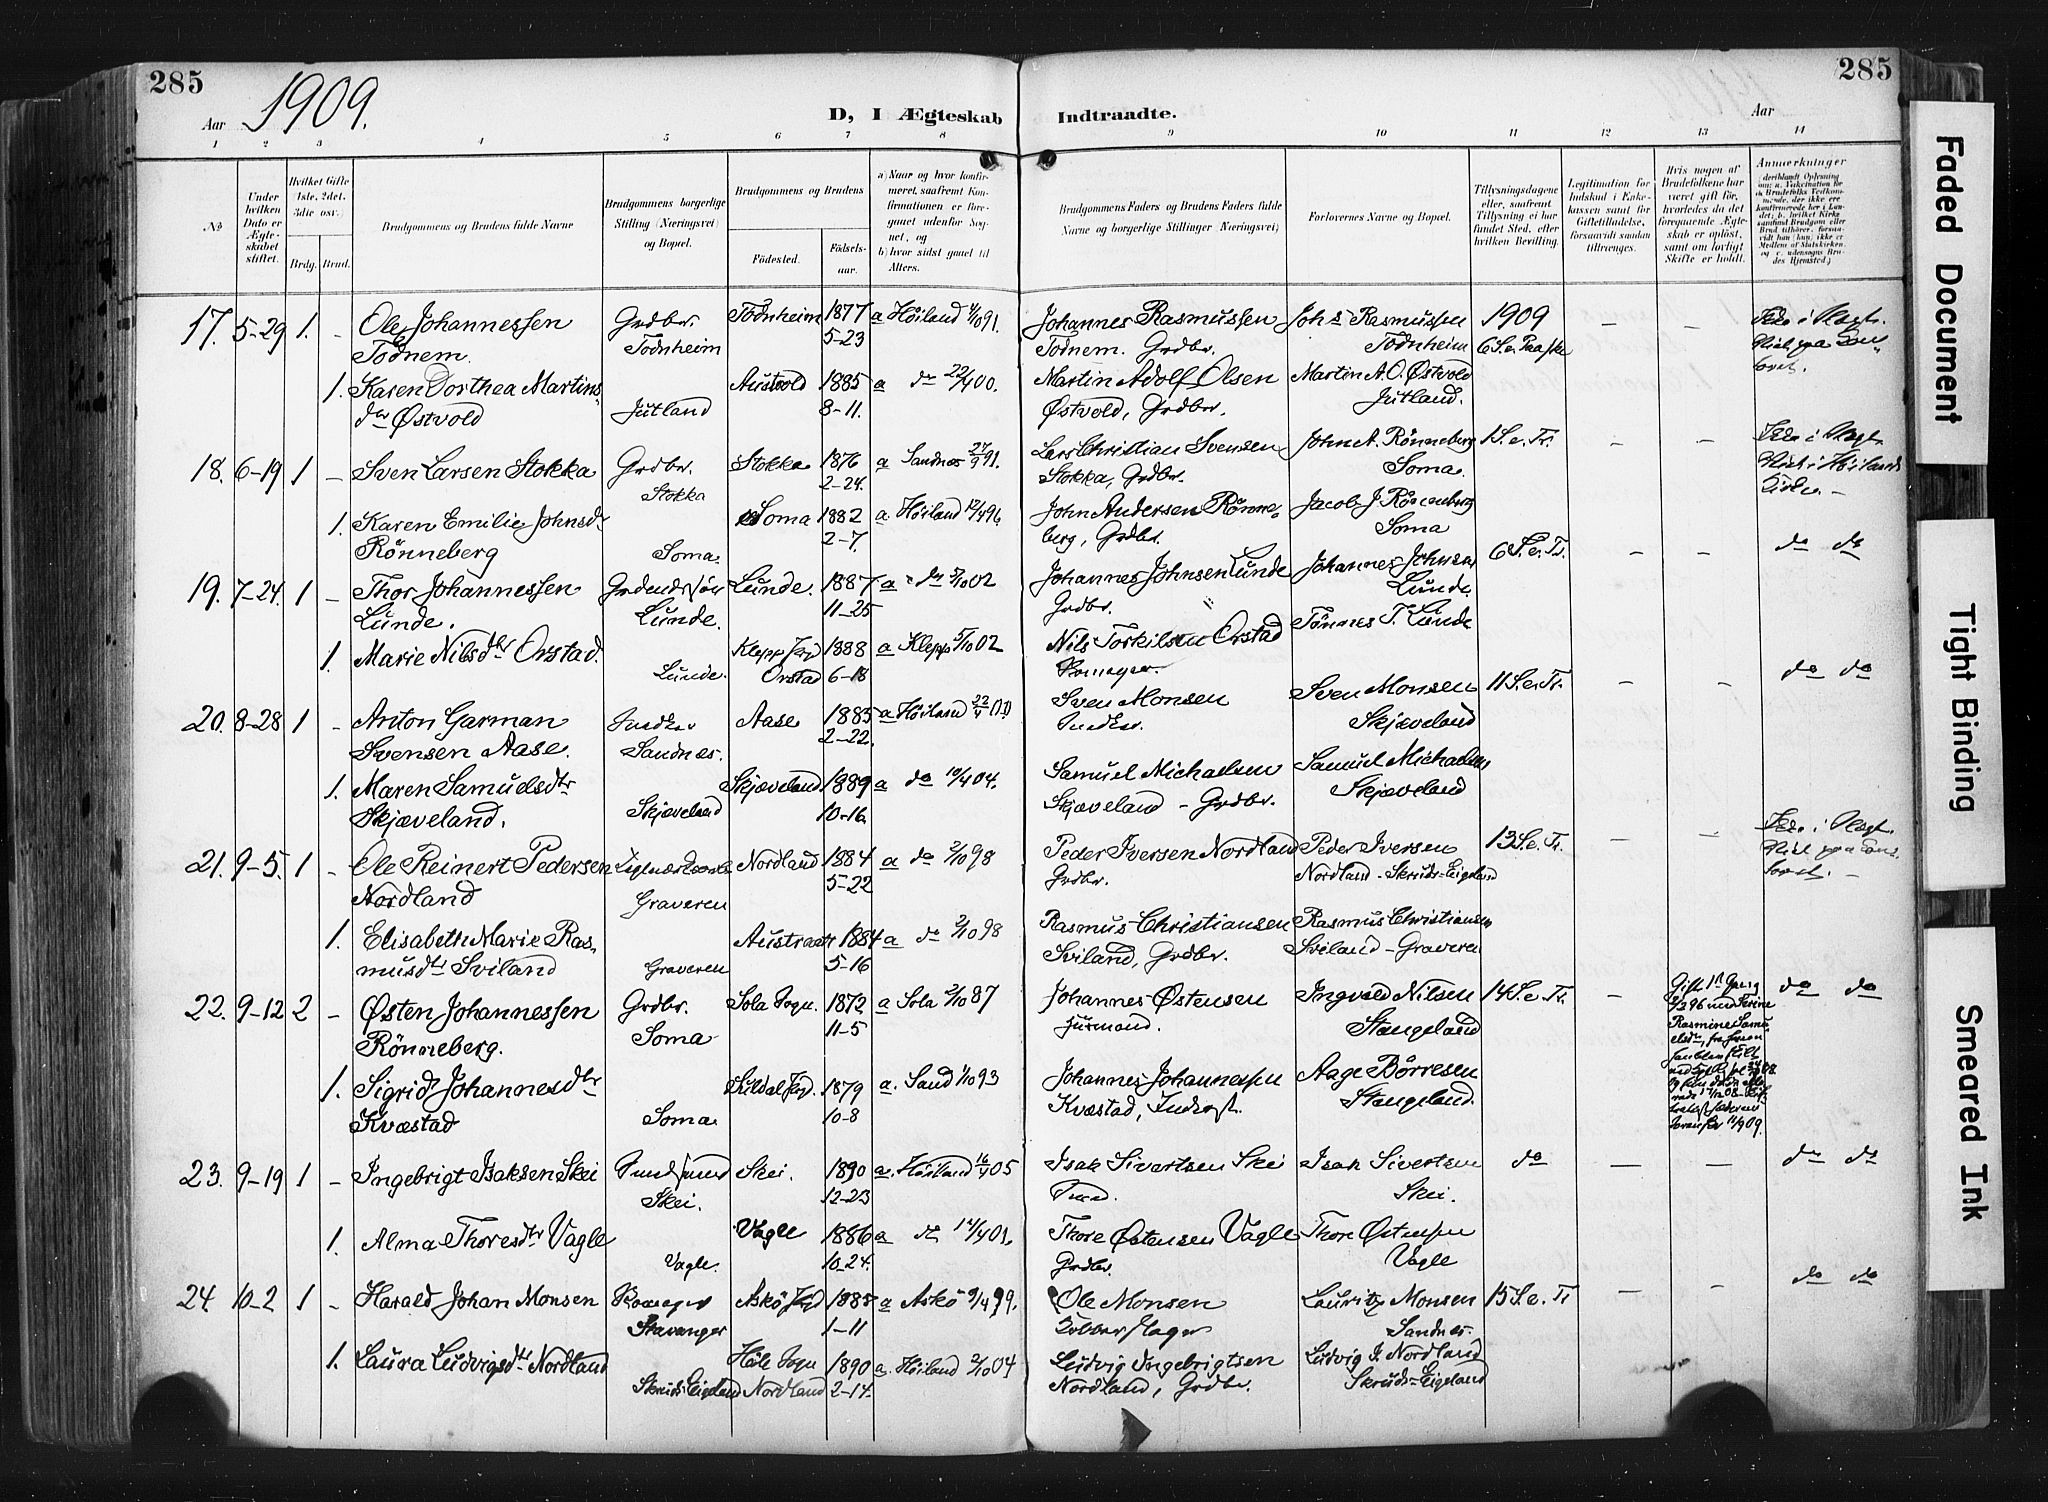 285
1909.
Aar
D, I Ægteskab Indtraadte.
Aar
285
1 2 3 4 5 6 7 8 9 10 11 12 13 14
№
Under hvilken Dato er Ægteskabet stiftet.
Hvilket Gifte 1ste, 2det, 3die osv.
Brdg. Brud.
Brudgommens og Brudens fulde Navne
Brudgommens borgerlige Stilling (Næringsvei) og Bopæl.
Brudgommens og Brudens
Födested.
Födselsaar.
a) Naar og hvor konfirmeret, saafremt Konfirmationen er foregaaet udenfor Sognet, og
b) hvor sidst gaaet til Alters.
Brudgommens Faders og Brudens Faders fulde Navne og borgerlige Stillinger (Næringsvei)
Forlovernes Navne og Bopæl.
Tillysningsdagene eller, saafremt Tillysning ei har fundet Sted, efter hvilken Bevilling.
Hvis nogen af Brudefolkene har været gift før, hvorledes da det foregaaende Ægteskab er oplöst, samt om lovligt Skifte er holdt.
Anmerkninger
17. 5-29 1. - Ole Johannessen Todnem. Grdbr. Todnheim Todnheim 1877 5-23 a Höiland 4/10 91. Johannes Rasmussen Todnem. Grdbr. Johs Rasmussen Todnheim 1909 6 S. e. Paaske - -
1. Karen Dorthea Martinsdtr Østvold Jutland Austvold 1885 8-11. a do 22/4 00. Martin Adolf Olsen Østvold, Grdbr. Martin A. O. Østvold Jutland.
18. 6-19 1 - Sven Larsen Stokka Grdbr. Stokka Stokka 1876 2-24. a Sandnes 27/9 91. Lars Christian Svensen Stokka, Grdbr. John A. Rönneberg Soma. 1 S. e. Tr. - -
1. Karen Emilie Johnsdr Rönneberg Soma. Soma 1882 2-7. a. Höiland 12/4 96 John Andersen Rönneberg, Grdbr. Jacob J. Rönneberg Soma
19. 7-24. 1 - Thor Johannessen Lunde. Lunde. Lunde. 1887 11-25 a do 5/10 02 Johannes Johnsen Lunde Grdbr. Johannes Johnsen Lunde. 6 S. e. Tr. - - do do
1. Marie Nilsdtr Orstad. Lunde. Klepp Orstad 1888 6-18 a Klepp 5/10 02 Nils Torkilsen Orstad Tönnes T. Lunde
20. 8-28 1 - Anton Garman Svensen Aase. Sandnes. Aase 1885 2-22. a Höiland 22/4 00 Sven Monsen Sven Monsen Skjæveland 11 S. e. Tr. - - do do
1. Maren Samuelsdtr Skjæveland. Skjæveland Skjæveland 1889 10-16. a do 10/4 04. Samuel Michaelsen Skjæveland - Grdbr. Samuel Michaelsen Skjæveland
21. 9-5. 1 - Ole Reinert Pedersen Nordland Graveren Nordland 1884 5-22 a do 2/10 98 Peder Iversen Nordland Grdbr. Peder Iversen Nordland - Skruds-Eigeland 13 S. e. Tr. - -
1. Elisabeth Marie Rasmusdtr Sviland Graveren Austraat 1884 5-16 a do 2/10 98 Rasmus Christiansen Sviland, Grdbr. Rasmus Christiansen Sviland - Graveren
22. 9-12 2 - Østen Johannessen Rönneberg. Grdbr. Soma Sola Sogn. 1872 11-5 a Sola 2/10 87 Johannes Østensen Ingvald Nilsen Stangeland 14 S. e. Tr. - do do
1. Sigrid Johannesdtr Kvæstad Soma 1879 10-8 a. Sand 1/10 93 Johannes Johannessen Kvæstad, Aage Börresen Stangeland.
23. 9-19 1 - Ingebrigt Isaksen Skei Skei. Skei. 1890 12-23 a. Höiland 16/4 05 Isak Sivertsen Skei Isak Sivertsen Skei. do - - do do
1. Alma Thoresdtr Vagle Vagle. Vagle 1886 10-24. a do 14/4 01. Thore Østensen Vagle Grdbr. Thore Østensen Vagle
24. 10-2 1 - Harald Johan Monsen Stavanger Askö 1885 1-11 a Askö 9/4 99. Ole Monsen Lauritz Monsen Sandnes. 15 S. e. Tr - - do do
1. Laura Ludvigsdtr Nordland Skruds-Eigeland Höle Sogn Nordland 1890 2-14. a. Höiland 2/10 04 Ludvig Ingebrigtsen Nordland, Grdbr. Ludvig I. Nordland Skruds-Eigeland
Faded Document
Tight Binding
Smeared Ink